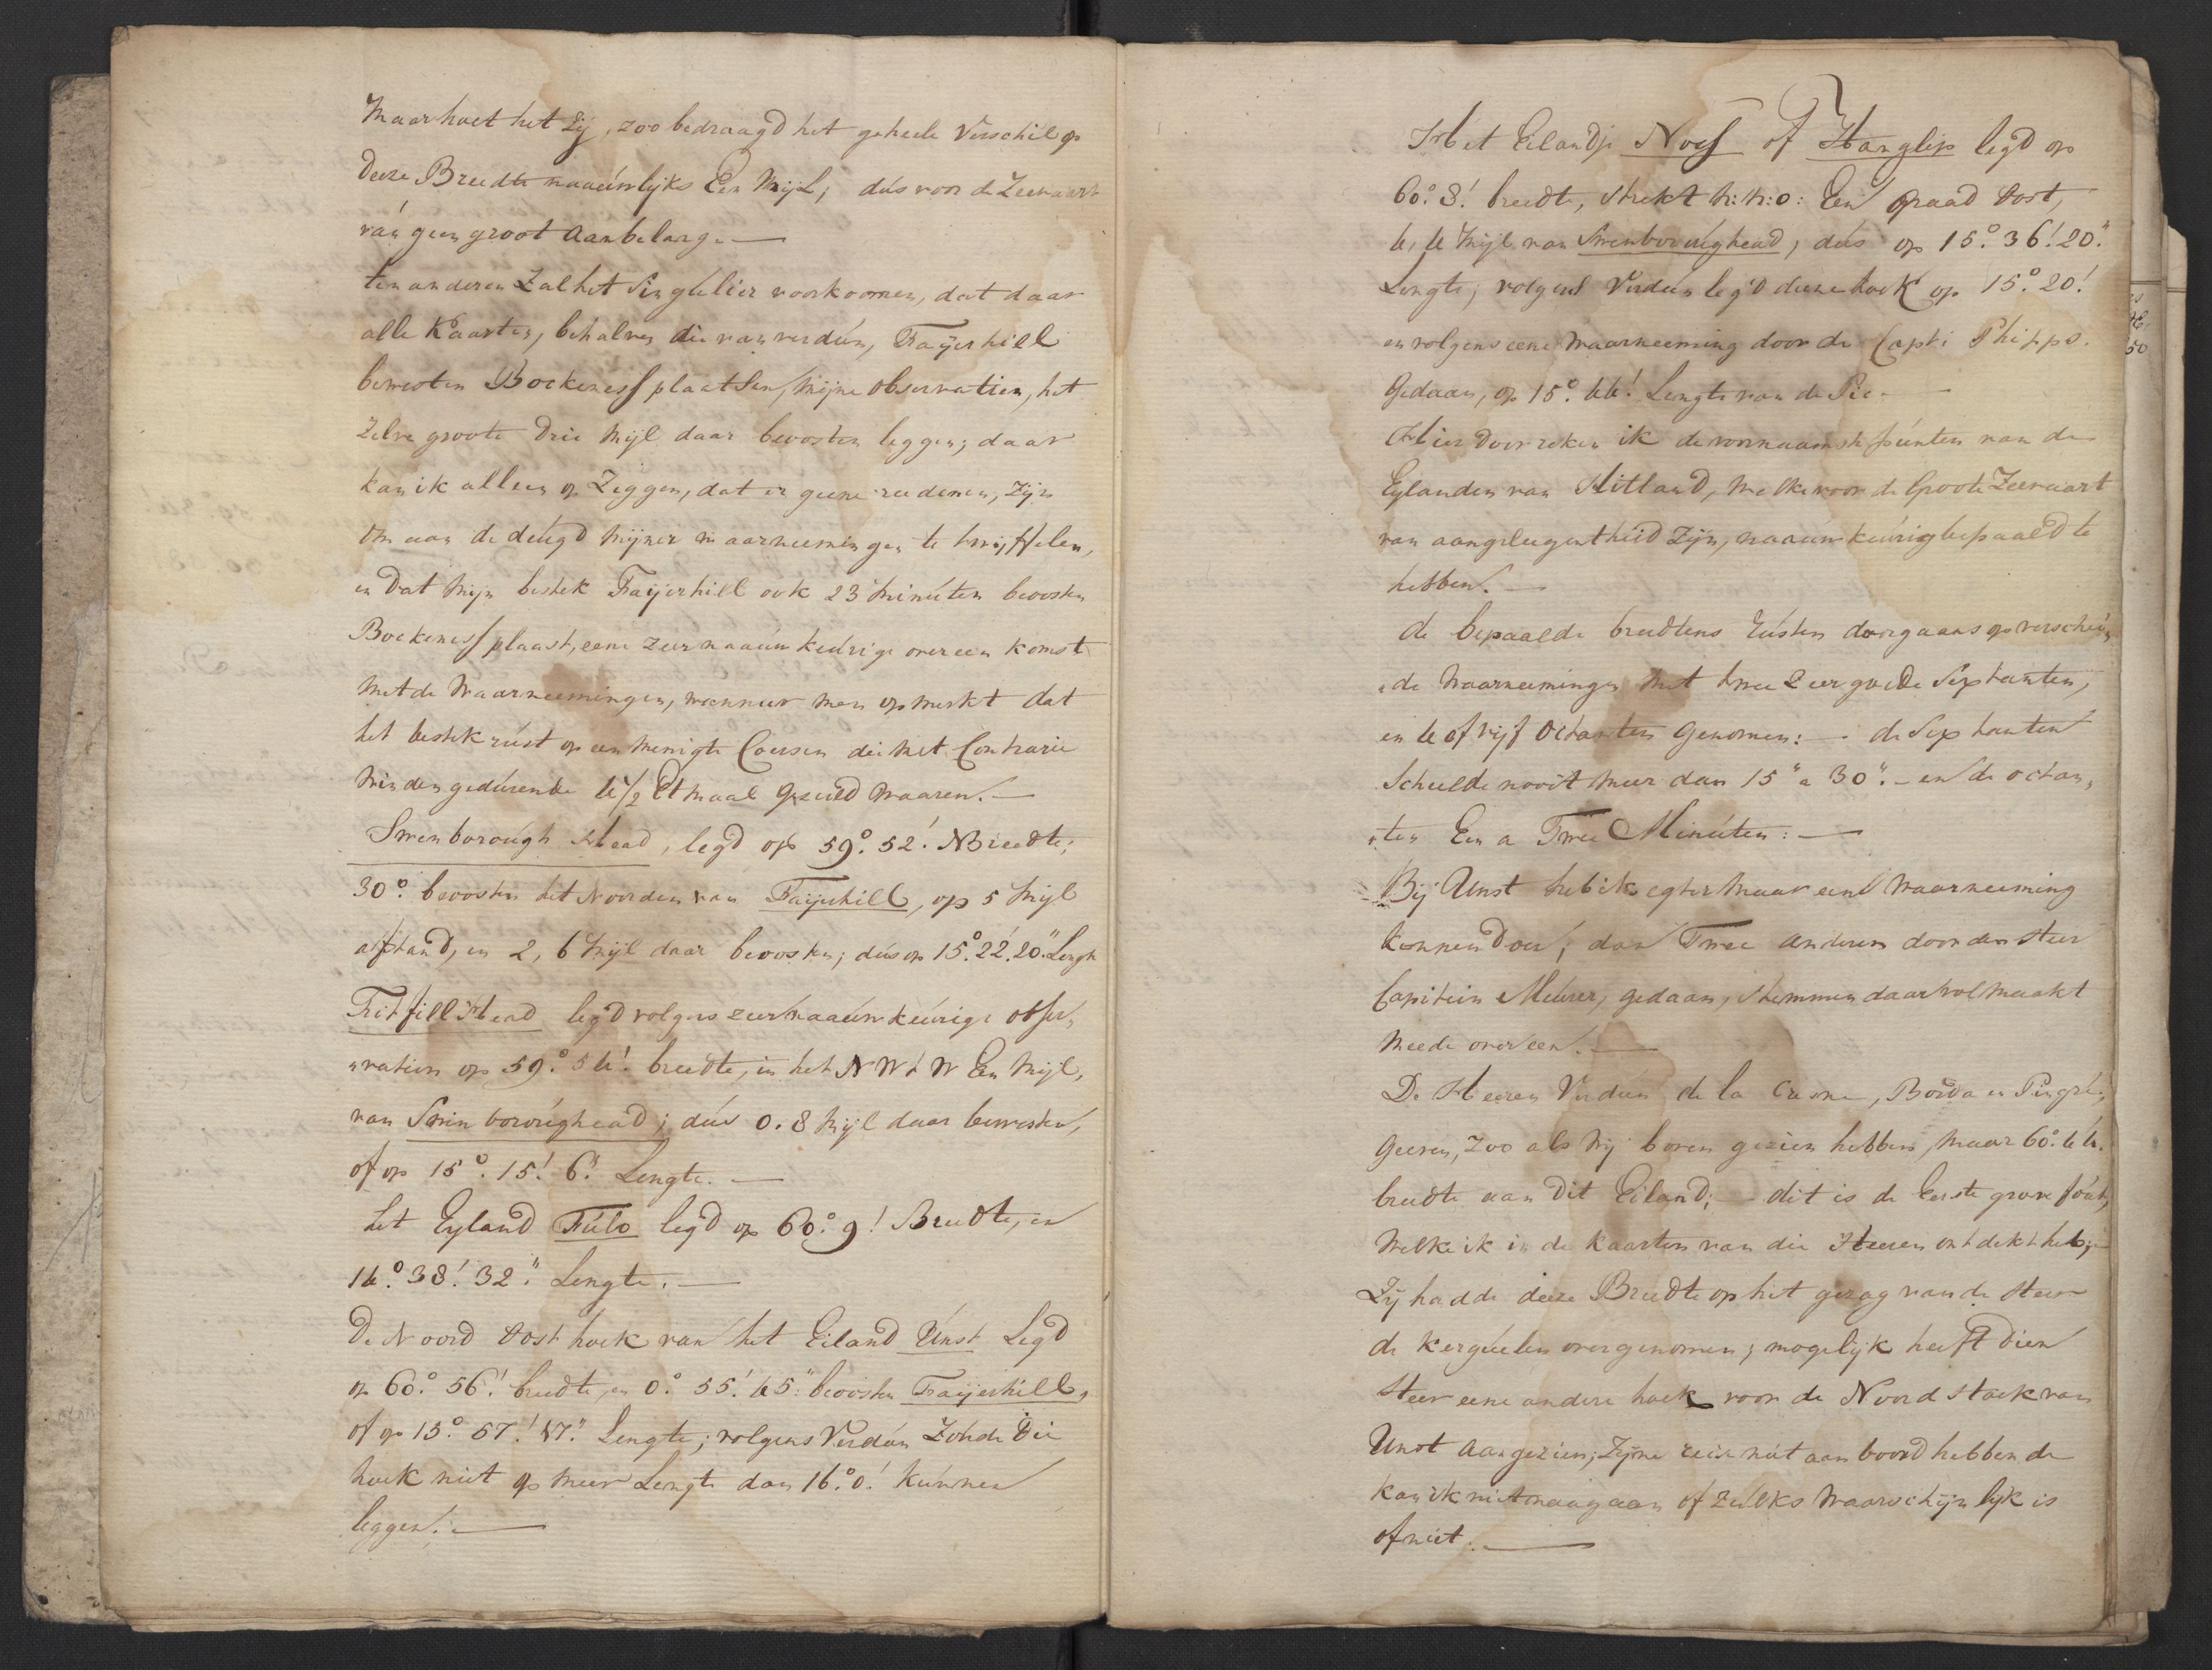 Maar hoet het Zij, zoo bedraagd het geheele Verschil op
deeze Breedte naauwlyks Een Mijl; dús voor de Zeevaart
ván geen groot Aanbelang. —
ten anderen Zal het Singúlier voorkoomen, dat daar
alle Kaarten, behalven die van verdún, Faÿerhill
bewesten Bockeness plaatsen, Mijne observatien, het
Zelve groote Drie Mijl daar beoosten leggen; daar
kan ik alleen op Zeggen, dat er geene reedenen, Zijn
Om aan de deúgd Mijner waarneemingen te twijffelen,
en dat Mijn bestek Faijerhill ook 23 Minúten beoosten
Bockeness plaast, eene zeer naaúwkeúrige overeenkomst
Met de Waarneemingen, wanneer Men opmerkt dat
het bestek rúst op een Menigte Coersen die Met Contrarie
Winden gedúrende 4 1/2 Etmaal Gezeild Waaren. —
Swenboroúgh Head, legd op 59°. 52'. NBreedte;
30°. beoosten het Noorden van Faijerhill, op 5 Mijl
afstand, en 2, 6 Mijl daar beoosten; dús op 15°. 22'. 20". Lengte
Fitfill Head legd volgens zeer naaúwkeúrige obser„
„vatien op 59°. 54'. breedte, in het NWtW Een Mijl,
van Swinboroúghead; dús 0. 8 Mijl daar bewesten,
of op 15°. 15'. 6". Lengte. —
het Eyland Fúlo legd op 60°. 9'. Breedte, en
14°. 38'. 32". Lengte. —
De Noord Oost hoek van het Eiland Únst Legd
op 60°. 56'. breedte, en 0°. 55'. 45". beoosten Faijerhill,
of op 15°. 57'. 47". Lengte; volgens Verdún Zoúde die
hoek niet op Meer Lengte dan 16°. 0'. kúnnen
leggen. —
Het Eilandje Noss of Hanglip legd op
60°. 8'. breedte, strekt N: N: O: Een Graad Oost,
4, 4 Mijl van Swenboroúghead; dús op 15°. 36'. 20".
Lengte; volgens Verdún leg'd deeze hoek op 15°. 20'.
en volgens eene Waarneeming door de Capt: Phipps.
Gedaan, op 15°. 44'. Lengte van de Pic. —
Hier door reken ik de voornaamste púnten van de
Eylanden van Hitland, Welke voor de Groote Zeevaart
van aangeleegentheid Zijn, naaúwkeúrig bepaald te
hebben. —
de bepaalde breedtens rústen doorgaans op verscheij„
„de Waarneemingen Met twee Zeer goede Sextanten,
en 4 of vijf Octanten Genomen: — de Sextanten
Scheelde nooit Meer dan 15" a 30". — en de octan„
„ten Een a Twee Minúten: —
Bij Unst heb ik egter Maar eene Waarneeming
konnen doen; dan Twee anderen door den Heer
Capitein Meúrer, gedaan, stemmen daar volmaakt
Meede overeen. —
De Heeren Verdún de la Crenne, Borda en Pingré,
Geeven, zoo als Wij boven gezien hebben, Maar 60°. 44.
breedte aan Dit Eiland; — dit is de Eerste grove foút,
Welke ik in de kaarten van die Heeren ontdekt heb;
Zij hadde deeze Breedte op het gezag van de Heer
de Kergúelen overgenomen; mogelijk heeft Dien
Heer eene andere hoek voor de Noord Hoek van
Unst Aangezien; Zijne reis niet aan boord hebben de
kan ik niet naagaan of Zúlks Waarschijnlijk is
of niet. —